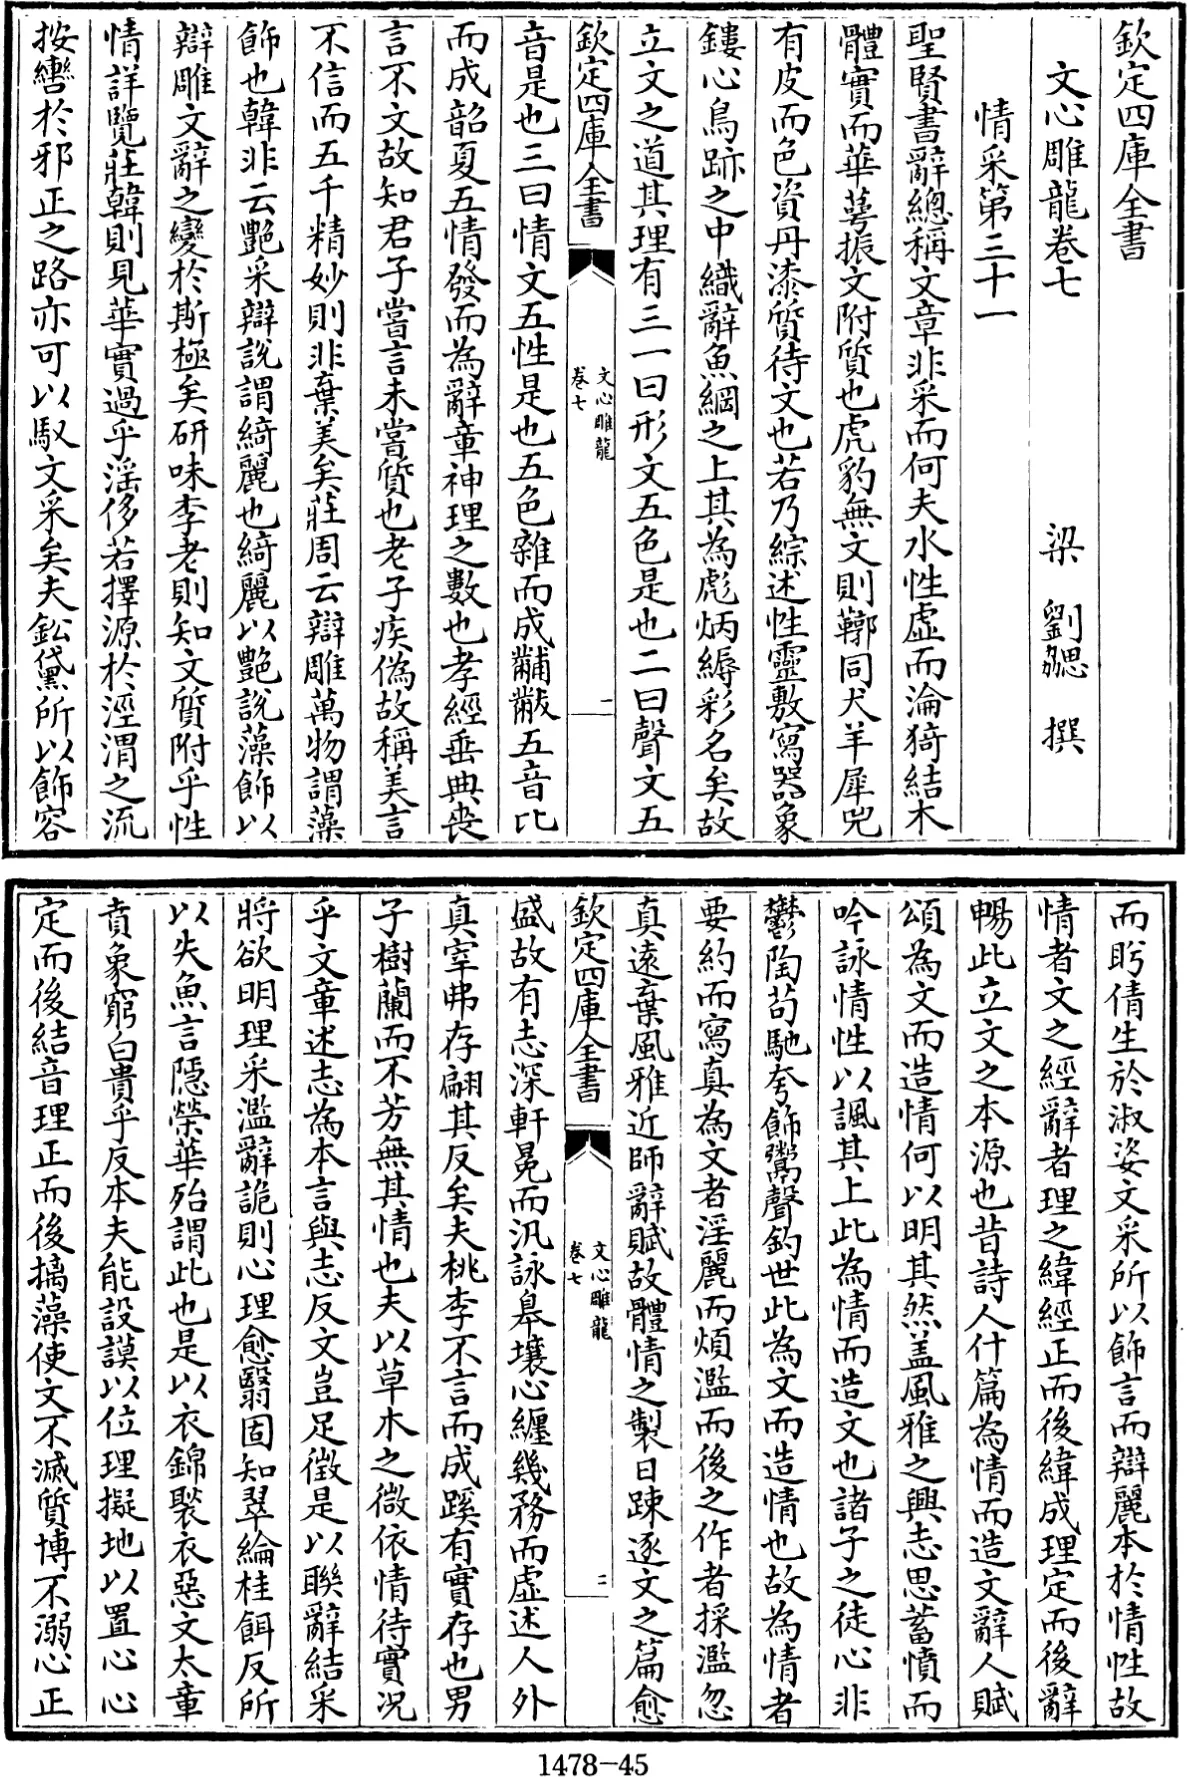 欽定四庫全書
文心雕龍卷七
梁 劉勰 撰
情采第三十一
聖賢書辭總稱文章非采而何夫水性虛而淪猗結木
體實而華萼振文附質也虎豹無文則鞹同犬羊犀兕
有皮而色資丹漆質待文也若乃綜述性靈敷寫器象
鏤心鳥跡之中織辭魚網之上其為彪炳縟彩名矣故
立文之道其理有三一曰形文五色是也二曰聲文五
欽定四庫全書
文心雕龍
卷七
一
音是也三曰情文五性是也五色雜而成黼黻五音比
而成韶夏五情發而為辭章神理之數也孝經垂典喪
言不文故知君子嘗言未嘗質也老子疾偽故稱美言
不信而五千精妙則非棄美矣莊周云辯雕萬物謂藻
飾也韓非云艷采辯説謂綺麗也綺麗以艷説藻飾以
辯雕文辭之變於斯極矣研味李老則知文質附乎性
情詳覽莊韓則見華實過乎淫侈若擇源於涇渭之流
按轡於邪正之路亦可以馭文采矣夫鉛黛所以飾容
而盼倩生於淑姿文采所以飾言而辯麗本於情性故
情者文之經辭者理之緯經正而後緯成理定而後辭
暢此立文之本源也昔詩人什篇為情而造文辭人賦
頌為文而造情何以明其然盖風雅之興志思蓄憤而
吟詠情性以諷其上此為情而造文也諸子之徒心非
鬱陶苟馳夸飾鬻聲釣世此為文而造情也故為情者
要約而寫真為文者淫麗而煩濫而後之作者採濫忽
真遠棄風雅近師辭賦故體情之製日踈逐文之篇愈
欽定四庫全書
文心雕龍
卷七
二
盛故有志深軒冕而汎詠臯壤心纒幾務而虛述人外
真宰弗存翩其反矣夫桃李不言而成蹊有實存也男
子樹蘭而不芳無其情也夫以草木之微依情待實况
乎文章述志為本言與志反文豈足徴是以聯辭結采
將欲明理采濫辭詭則心理愈翳固知翠綸桂餌反所
以失魚言隱榮華殆謂此也是以衣錦褧衣惡文太章
賁象窮白貴乎反本夫能設謨以位理擬地以置心心
定而後結音理正而後摛藻使文不滅質博不溺心正
1478-45